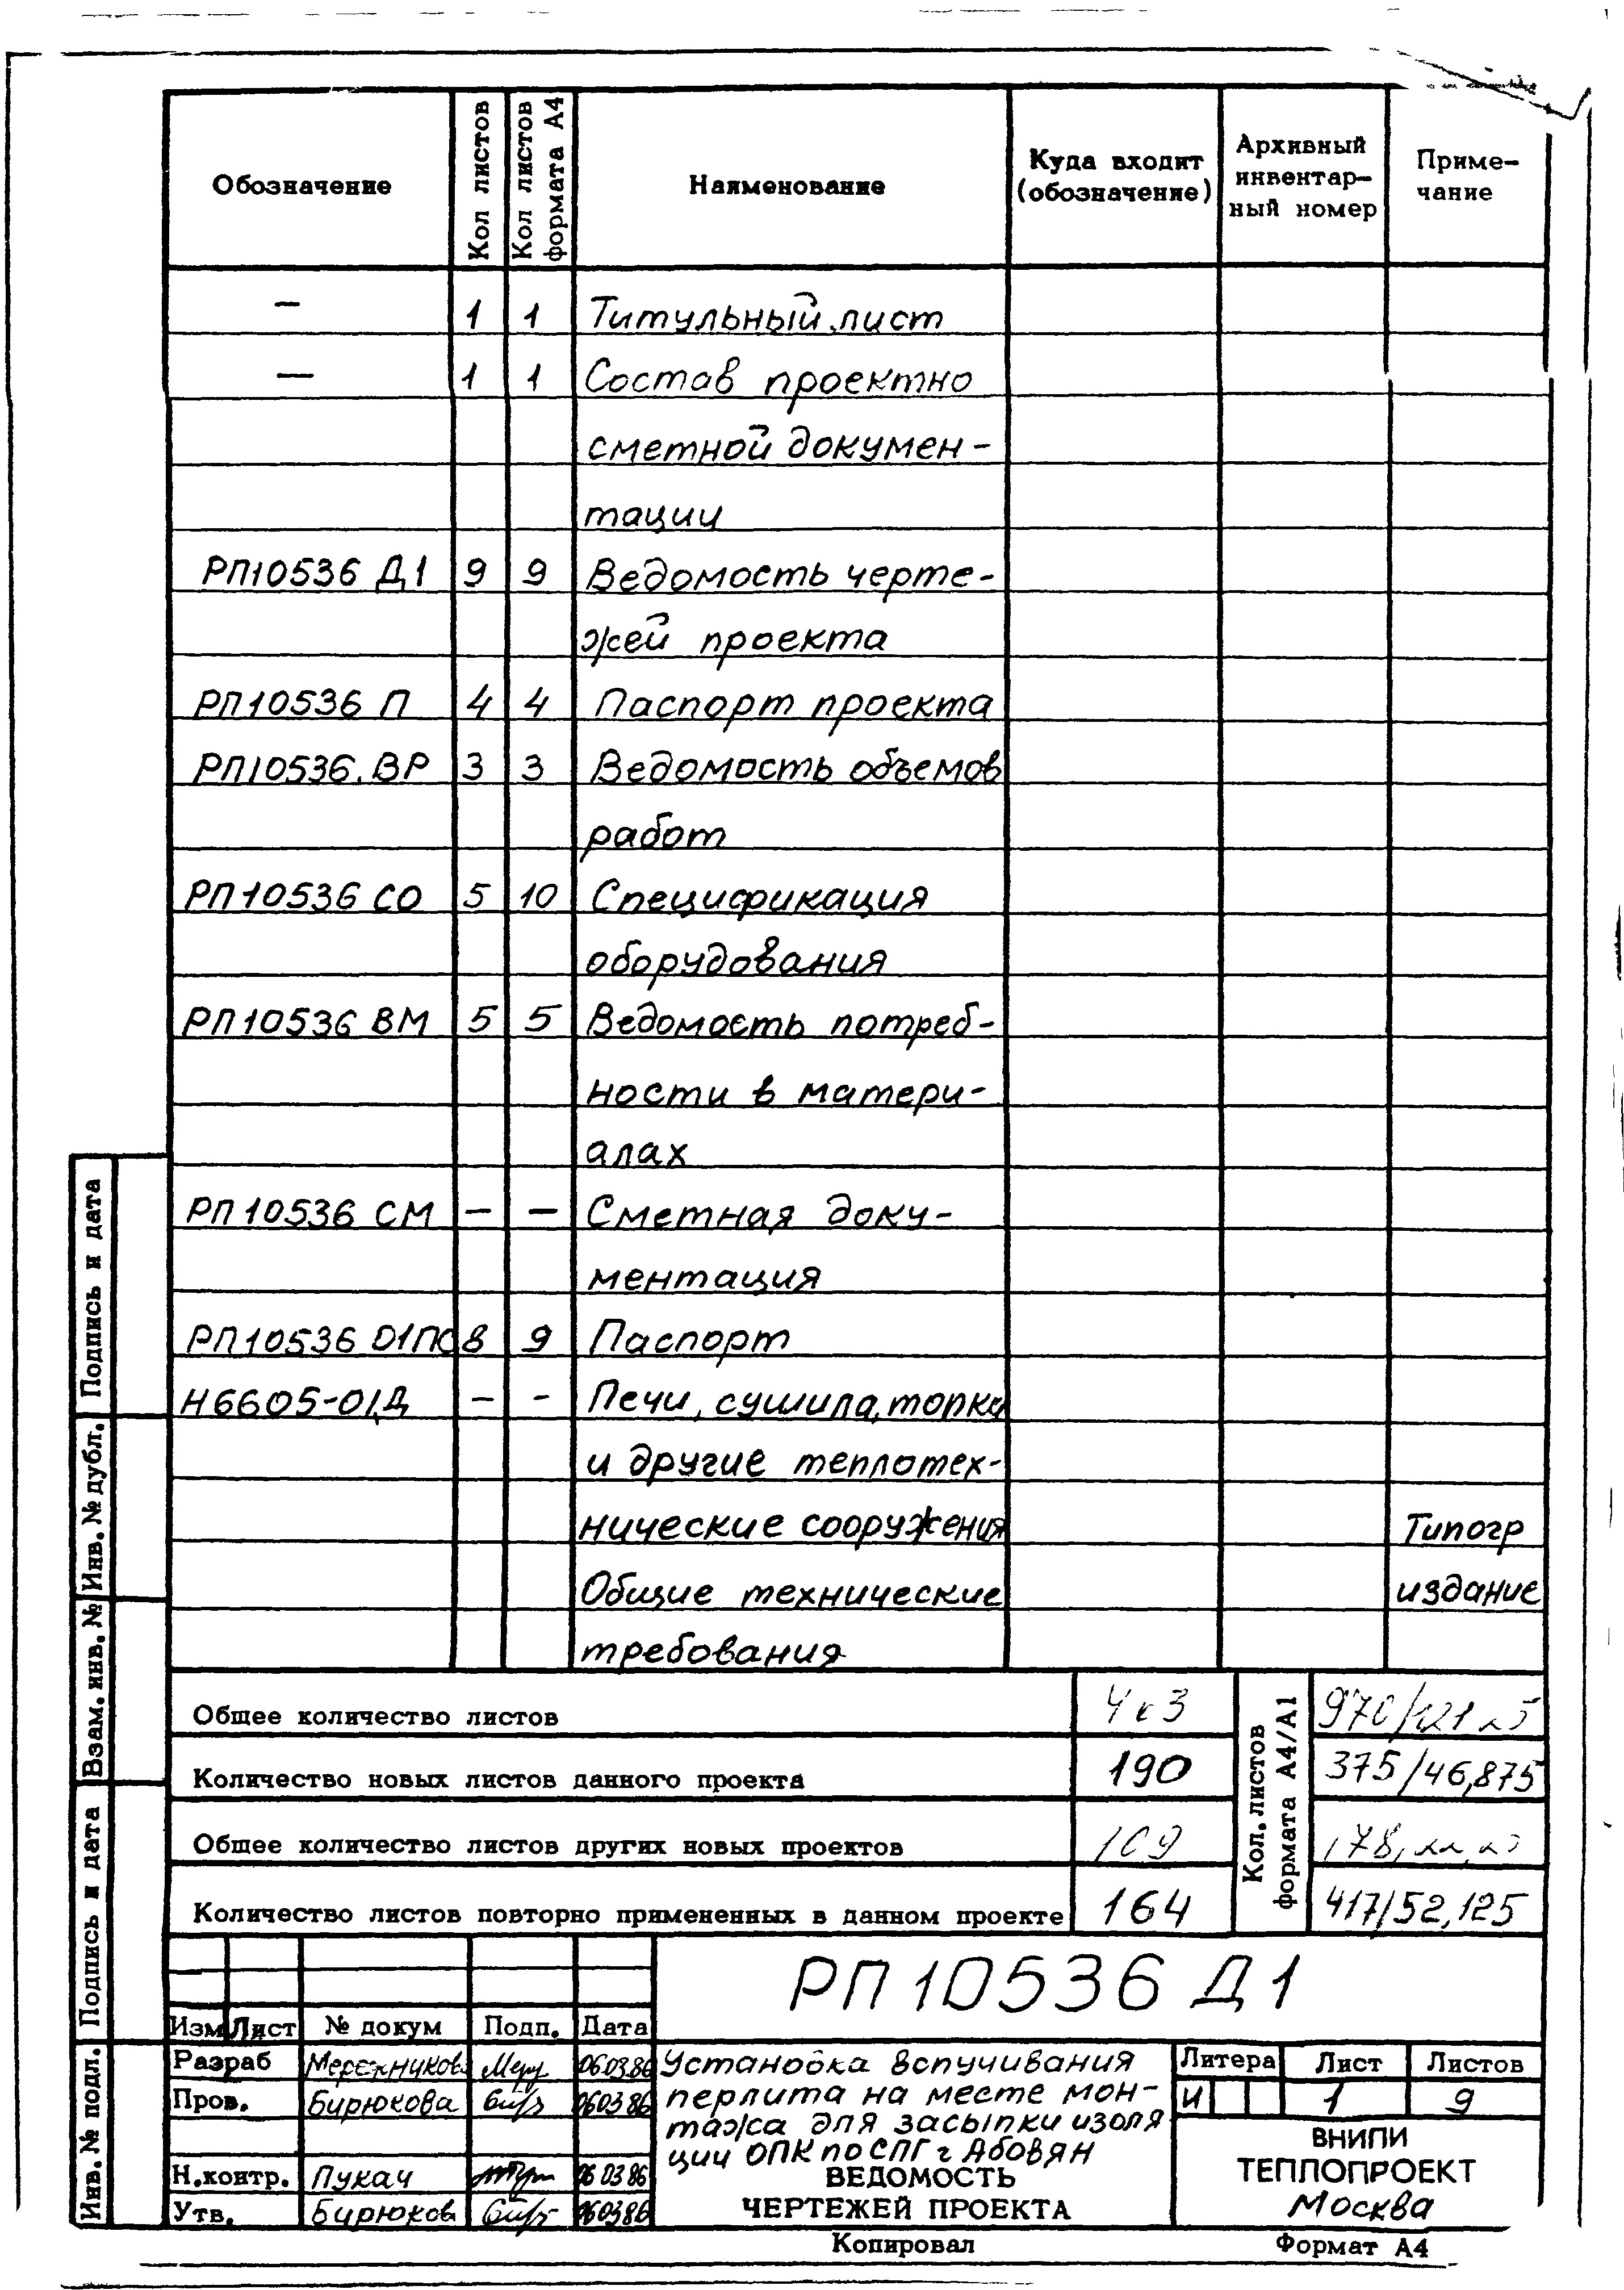 Обозначение
Кол листов
Кол листов формата А4
Наименование
Куда входит (обозначение)
Архивный инвентар-ный номер
Приме-чание
— 1 1 Титульный лист
— 1 1 Состав проектно
сметной докумен-
тации
РП10536 Д1 9 9 Ведомость черте-
жей проекта
РП10536 П 4 4 Паспорт проекта
РП10536. ВР 3 3 Ведомость объемов
работ
РП10536 СО 5 10 Спецификация
оборудования
РП10536 ВМ 5 5 Ведомость потреб-
ности в матери-
алах
РП10536 СМ — — Сметная доку-
ментация
РП10536 01ПС 8 9 Паспорт
Н6605-01Д — - Печи, сушила, топки
и другие теплотех-
нические сооружения Типогр
Общие технические издание
требования
Общее количество листов
Количество новых листов данного проекта 190 375/46,875
Общее количество листов других новых проектов
Количество листов повторно примененных в данном проекте 164 417/52,125
Кол. листов
формата А4/А1
РП10536 Д1
Изм Лист № докум Подп. Дата
Разраб Мережникова 06.03.86
Пров. Бирюкова 06.03.86
Н.контр. Пукач 06 03 86
Утв. Бирюков 06.03.86
Установка вспучивания
перлита на месте мон-
тажа для засыпки изоля
ции ОПК по СПГ г Абовян
ВЕДОМОСТЬ
ЧЕРТЕЖЕЙ ПРОЕКТА
Литера Лист Листов
И 1 9
ВНИПИ
ТЕПЛОПРОЕКТ
Москва
Копировал Формат А4
Подпись и дата
Инв. № дубл.
Взам. инв. №
Подпись и дата
Инв. № подл.